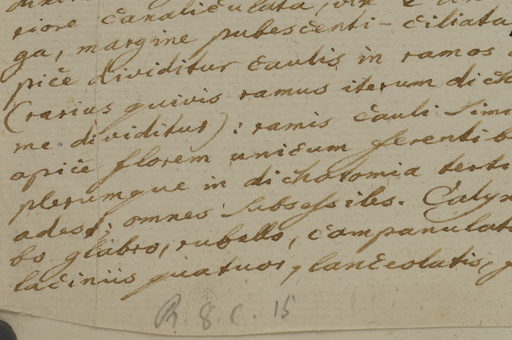 riore canaliculata, vix
ga, margine pubescenti-ciliata
pice dividitur caulis in ramos
(rarius quivis ramus iterum dicho
me dividitur): ramis cauli simi
apice florem unicum ferenti b
plerumque in dichotomia terti
adest, omnes subsessiles. Calyx
bo, glabro, rubello, campanulat
laciniis quatuor, lanceolatis,
R. 8. C. 15